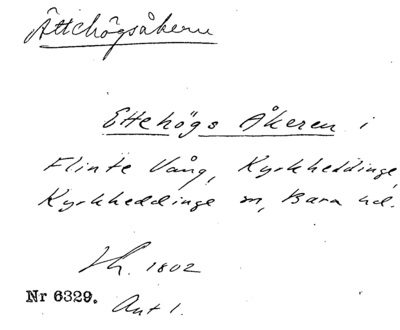 Ättehögsåkern
Ettehögs Åkeren i
Flinte Vång, Kyrkheddinge,
Kyrkheddinge sn, Bara hd.
1802
Nr 6329.
Ant 1.